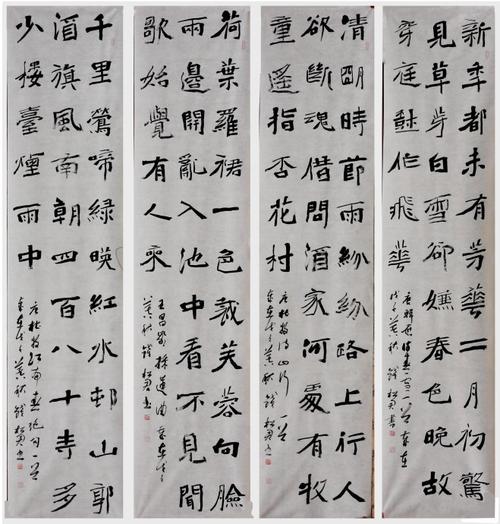 新年都未有芳華二月初驚
見草芽白雪卻嫌春色晚故
穿庭樹作飛華
清明時節雨紛紛路上行人
欲斷魂借問酒家何處有牧
童遥指杏花村
荷葉羅裙一色裁芙蓉向臉
兩邊開亂入池中看不見聞
歌始覺有人來
王昌齡採蓮曲
千里鶯啼綠暎紅水邨山郭
酒旗風南朝四百八十寺多
少樓臺煙雨中
唐杜牧江南春绝句一首